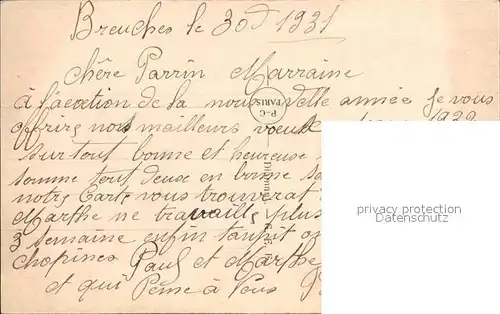 Breuches le 30 d 1931
chère Parrin Marraine
à l'acotion de la nouvelle année je vous
offrire nos mailleurs voeux 1932
surtout bonne et heureuse
somme tout deux en bonne sa
notre Carte vous trouverat
Marthe ne travaille plus
3 semaine enfin tanpit on
chopines Paul et Marthe
et qui Pense à Vous
P-C
PARIS
privacy protection
Datenschutz